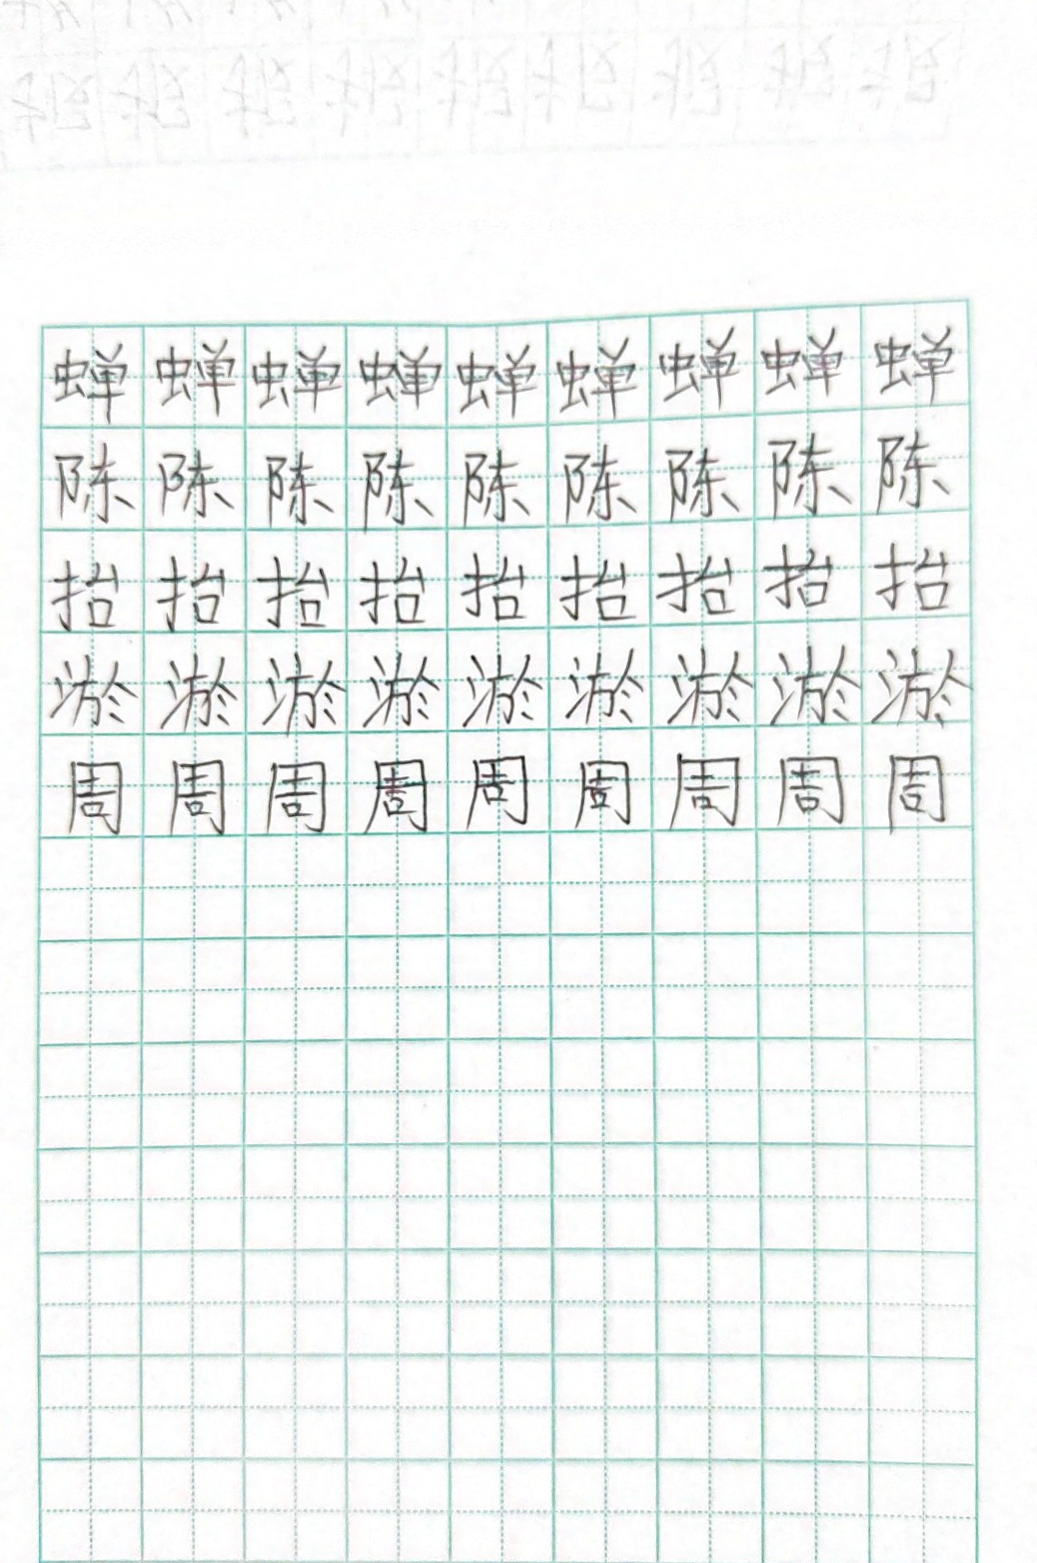 蝉蝉蝉蝉蝉蝉蝉蝉蝉
陈陈陈陈陈陈陈陈陈
抬抬抬抬抬抬抬抬抬
淤淤淤淤淤淤淤淤淤
周周周周周周周周周